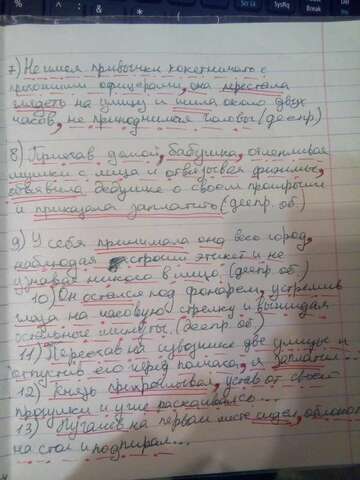 SysRq
Break
7) Не имея привычки кокетничать с
прохожими офицерами, она перестала
глядеть на улицу и шила около двух
часов, не приподнимая головы (деепр)
8) Приехав домой, бабушка, отлепливая
мушки с лица и отвязывая фижмы,
объявила дедушке о своем проигрыше
и приказала заплатить (деепр. об.)
9) У себя принимала она весь город,
наблюдая строгий этикет и не
узнавая никого в лицо. (деепр. об.)
10) Он остался под фонарем, устремив
глаза на часовую стрелку и выжидая
остальные минуты. (деепр. об.)
11) Переехав на извозчике две улицы и
отпустив его перед полчаса, я заплатил...
12) Князь прихрамывал, устав от своей
прогулки и уже раскаивался...
13) Пугачев на первом месте сидел, облокот
на стол и подпирал...